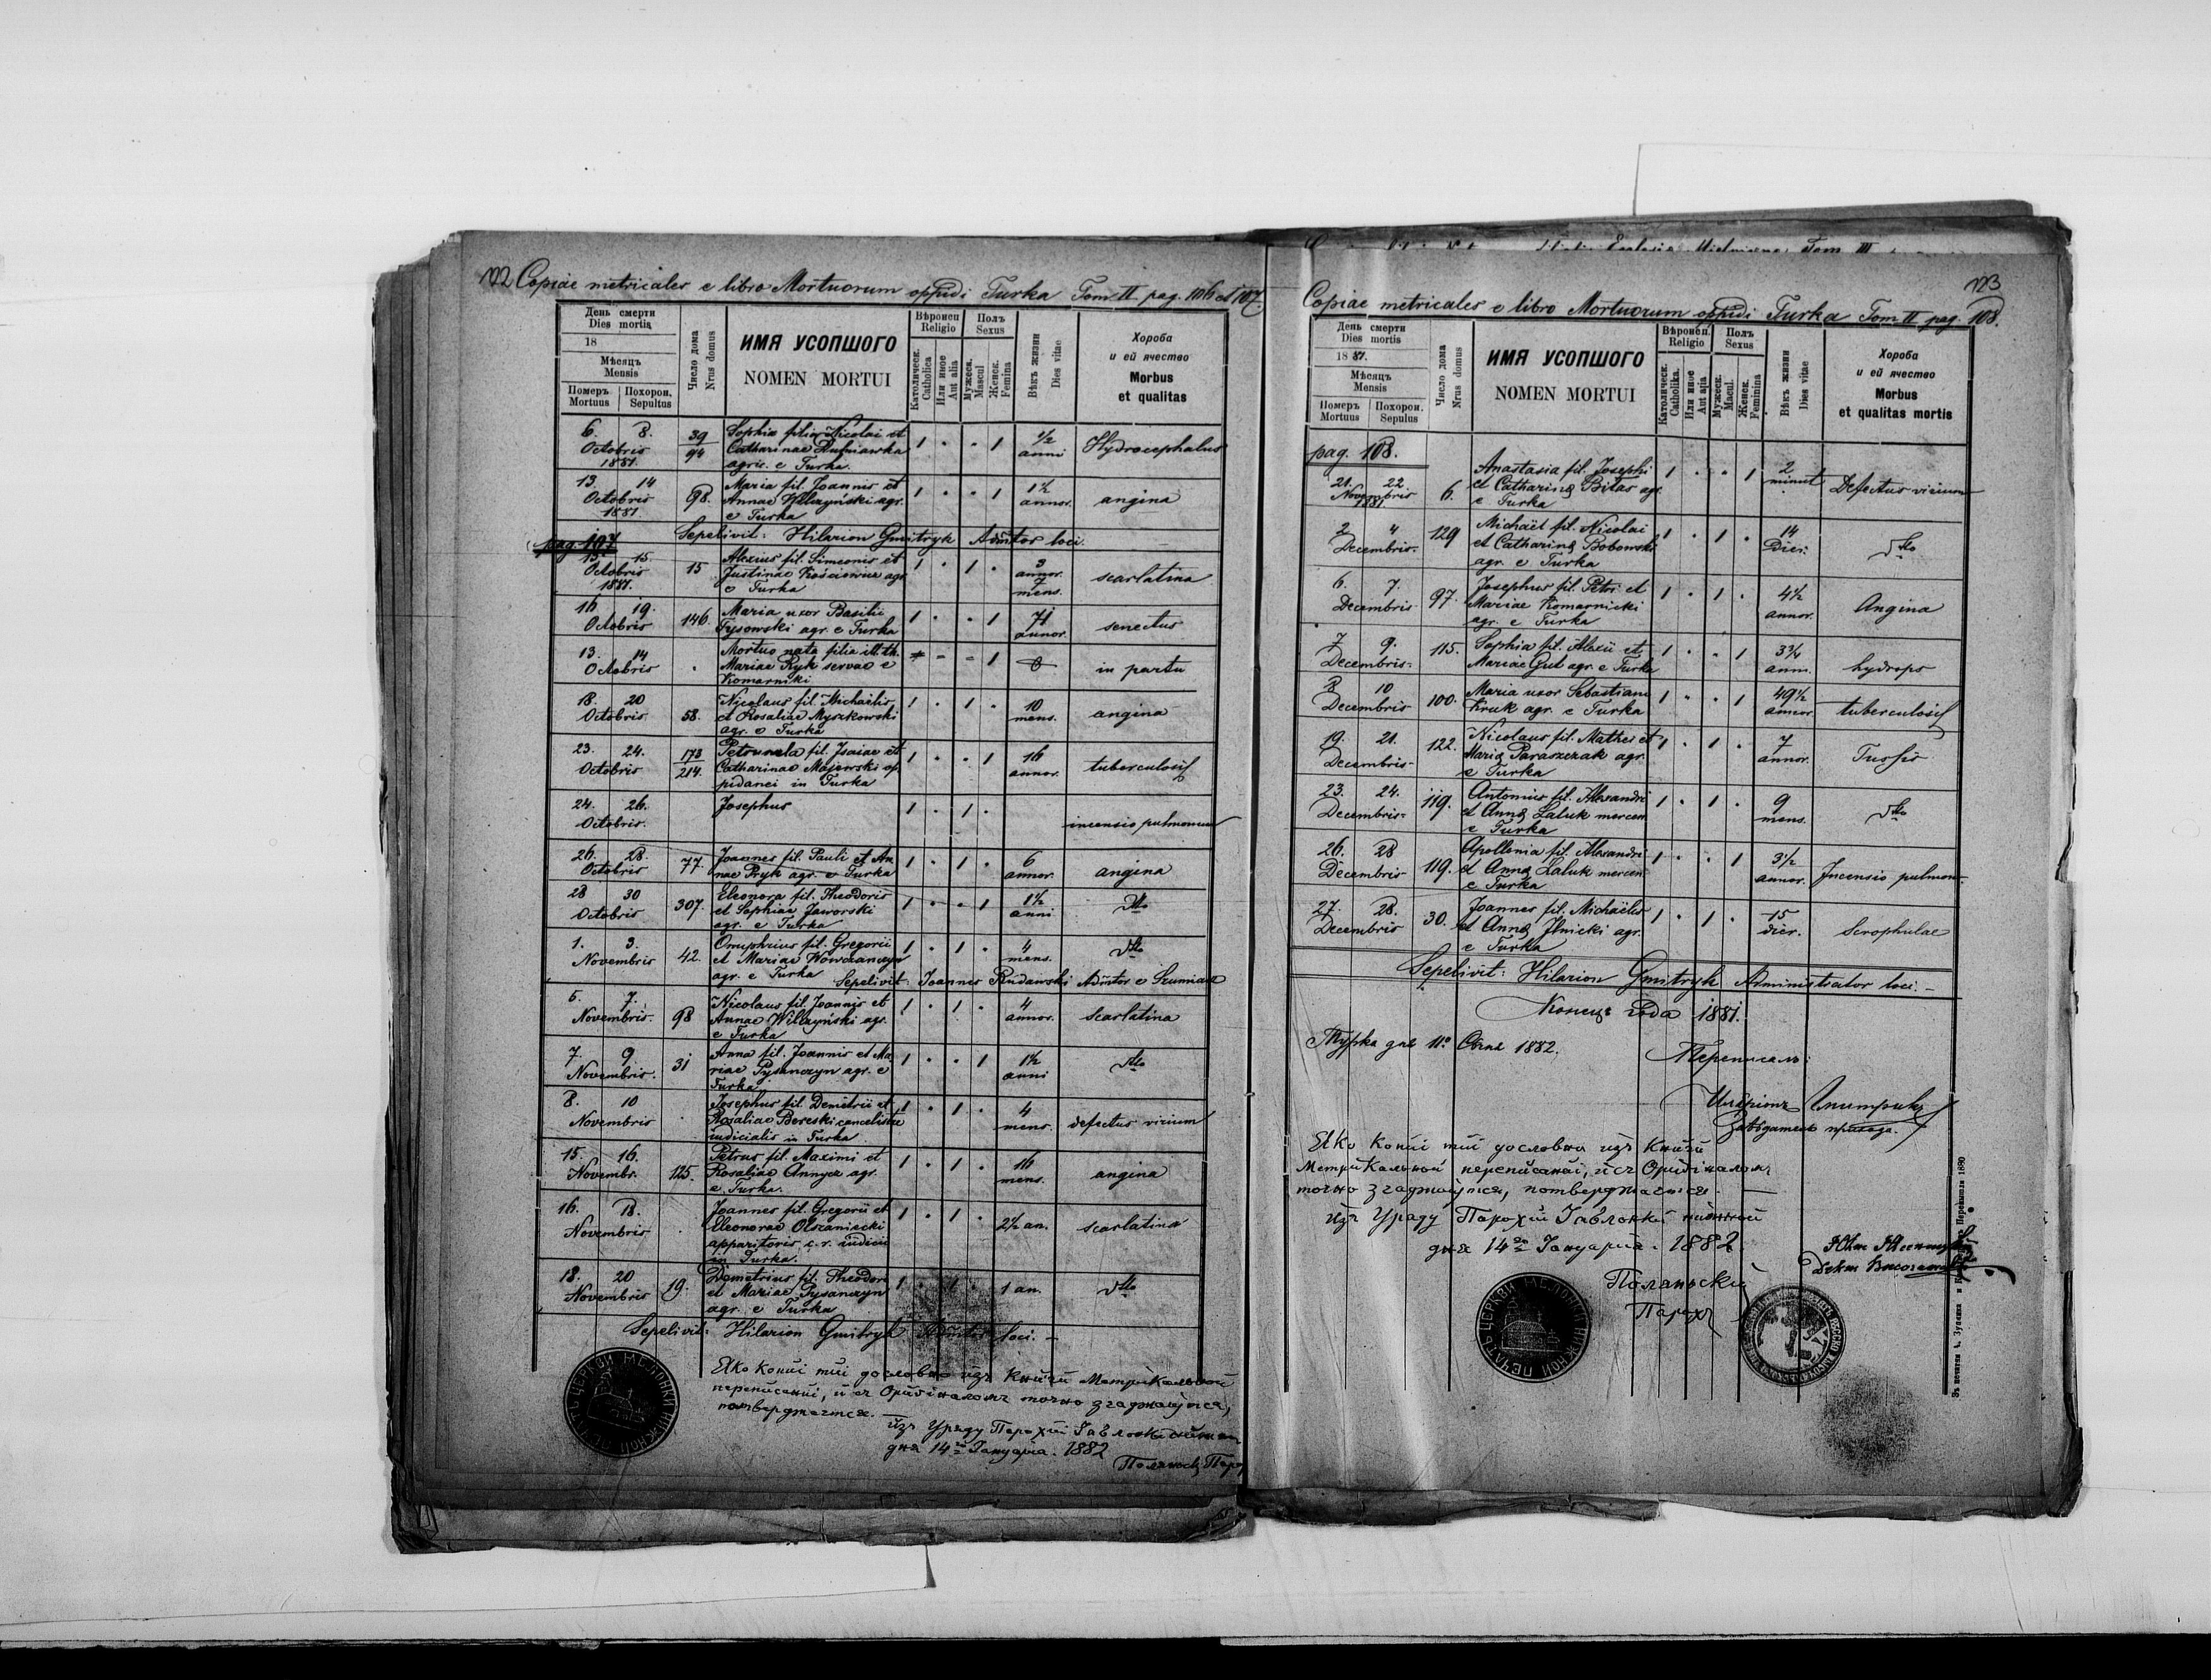 172 Copiae metricales e libro Mortuorum oppidi Turka Tom II pag. 106 et 107.
День смерти
Dies mortis
18
Мѣсяцъ
Mensis
Померъ
Mortuus
Похорон.
Sepultus
Число дома
Nrus domus
ИМЯ УСОПШОГО
NOMEN MORTUI
Вѣроисп
Religio
Католическ.
Catholica
Или иное
Aut alia
Полъ
Sexus
Мужеск.
Mascul
Женск.
Femina
Вѣкъ жизни
Dies vitae
Хороба
и ей ячество
Morbus
et qualitas
6. 8. Octobris 1881. 39/94 Sophia filia Nicolai et
Catharinae
agric. e Turka. 1 . . 1 1/2 anni Hydrocephalus
13. 14 Octobris 1881. 98. Maria fil. Joannis et
Annae Wilczyński agr.
e Turka 1 . . 1 1½ annor. angina
Sepelivit: Hilarion Gmitryk Admtor loci.
pag. 107
13. 15 Octobris 1881. 15 Alexius fil. Simeonis et
Justinae agr.
e Turka 1 . 1 . 3 annor. 7 mens. scarlatina
16 19. Octobris 146. Maria uxor Basilii
Tysowski agr. e Turka 1 . . 1 71 annor. senectus
13. 14 Octobris . Mortuo nata filia illth.
Mariae Ryk servae e
Komarniki - - 1 0 in partu
18. 20 Octobris 58. Nicolaus fil. Michaelis
et Rosaliae Myszkowski
agr. e Turka 1 . 1 . 10 mens. angina
23. 24. Octobris 173/214. Petrunela fil. Isaiae et
Catharinae Majewski op
pidanei in Turka 1 . . 1 16 annor. tuberculosis
24. 26. Octobris. Josephus 1 . 1 . incensio pulmonum
26. 28. Octobris 77. Joannes fil. Pauli et An
nae Pryk agr. e Turka 1 . 1 . 6 annor. angina
28 30 Octobris 307. Eleonora fil. Theodoris
et Sophiae Jaworski
agr. e Turka 1 . . 1 1½ anni dtto
1. 3. Novembris 42. Onuphrius fil. Gregorii
et Mariae Wowczanczyn
agr. e Turka 1 . 1 . 4 mens. dtto
Sepelivit: Joannes Rudawski Admtor e Szumiacz
5. 7. Novembris. 98 Nicolaus fil. Joannis et
Annae Wilczyński agr.
e Turka 1 . 1 . 4 annor. scarlatina
7. 9. Novembris. 31 Anna fil. Joannis et Ma
riae Pysanczyn agr. e
Turka 1 . . 1 1½ anni dtto
8. 10 Novembris . Josephus fil. Demetrii et
Rosaliae Bereski cancelistae
iudicialis in Turka 1 . 1 . 4 mens. defectus virium
15. 16. Novembr. 125. Petrus fil. Maximi et
Rosaliae Annycz agr.
e Turka. 1 . 1 . 16 mens. angina
16. 18. Novembris . Joannes fil. Gregorii et
Eleonorae Olszaniecki
apparitoris c.r. iudicii
in Turka. 1 . 1 . 2½ an. scarlatina
18. 20 Novembris 19. Demetrius fil. Theodori
et Mariae Pysanczyn
agr. e Turka 1 . 1 . 1 an. dtto
Sepelivit: Hilarion Gmitryk Admtor loci. -
Яко копіи тіи дословно изъ книги Метрикальной
переписаніи, и съ Оригіналомъ точно згаджаются,
потверджается. —
изъ Уряду Парохіи Яблонки нижной
дня 14го Януарія. 1882
173
Copiae metricales e libro Mortuorum oppidi Turka Tom II pag. 108.
День смерти
Dies mortis
18 81.
Мѣсяцъ
Mensis
Померъ
Mortuus
Похорон.
Sepulus
Число дома
Nrus domus
ИМЯ УСОПШОГО
NOMEN MORTUI
Вѣроисп.
Religio
Католическ.
Catholika.
Или иное
Aut alia
Полъ
Sexus
Мужеск.
Macul.
Женск.
Feminina
Вѣкъ жизни
Dies vitae
Хороба
и ей ячество
Morbus
et qualitas mortis
pag. 108.
21. 22 Novembris 1881. 6. Anastasia fil. Josephi
et Catharinę Bilas agr.
e Turka 1 . . 1 2 minut Defectus virium
2 4 Decembris. 129 Michaël fil. Nicolai
et Catharinę Bobowski
agr. e Turka 1 . 1 . 14 Dier. dtto
6. 7. Decembris 97. Josephus fil. Petri et
Mariae Komarnicki
agr. e Turka 1 . 1 . 4½ annor. Angina
7 9. Decembris. 115. Sophia fil. Alexii et
Mariae Gut agr. e Turka 1 . . 1 3¾ ann. hydrops
8 10 Decembris 100. Maria uxor Sebastiani
Kruk agr. e Turka 1 . . 1 49½ annor tuberculosis
19. 21. Decembris 122. Nicolaus fil. Mathei et
Marię Paraszczak agr.
e Turka 1 . 1 . 7 annor. Tussis
23. 24. Decembris 119. Antonius fil. Alexandri
et Annę Laluk mercen
e Turka 1 . 1 . 9 mens. dtto
26. 28 Decembris 119. Apollonia fil. Alexandri
et Annę Laluk mercen
e Turka 1 . . 1 3½ annor. Incensio pulmon.
27. 28. Decembris 30. Joannes fil. Michaëlis
et Annę Ilnicki agr.
e Turka 1 . 1 . 15 dier. Scrophulae
Sepelivit: Hilarion Gmitryk Administrator loci. -
Конецъ года 1881.
Турка дня 11о Сѣчня 1882.
Переписалъ:
Иляріонъ Гмитрикъ
завѣдатель прихода.
Яко копіи тіи дословно изъ Книги
Метрикальной переписаніи, и съ Оригіналомъ
точно згаджаются, потверджается. —
изъ Уряду Парохіи Яблонки нижной
дня 14го Януарія. 1882.
Поляньскій
Парохъ
ПЕЧАТЬ ЦЕРКВИ ЯБЛОНКИ НИЖНОЙ